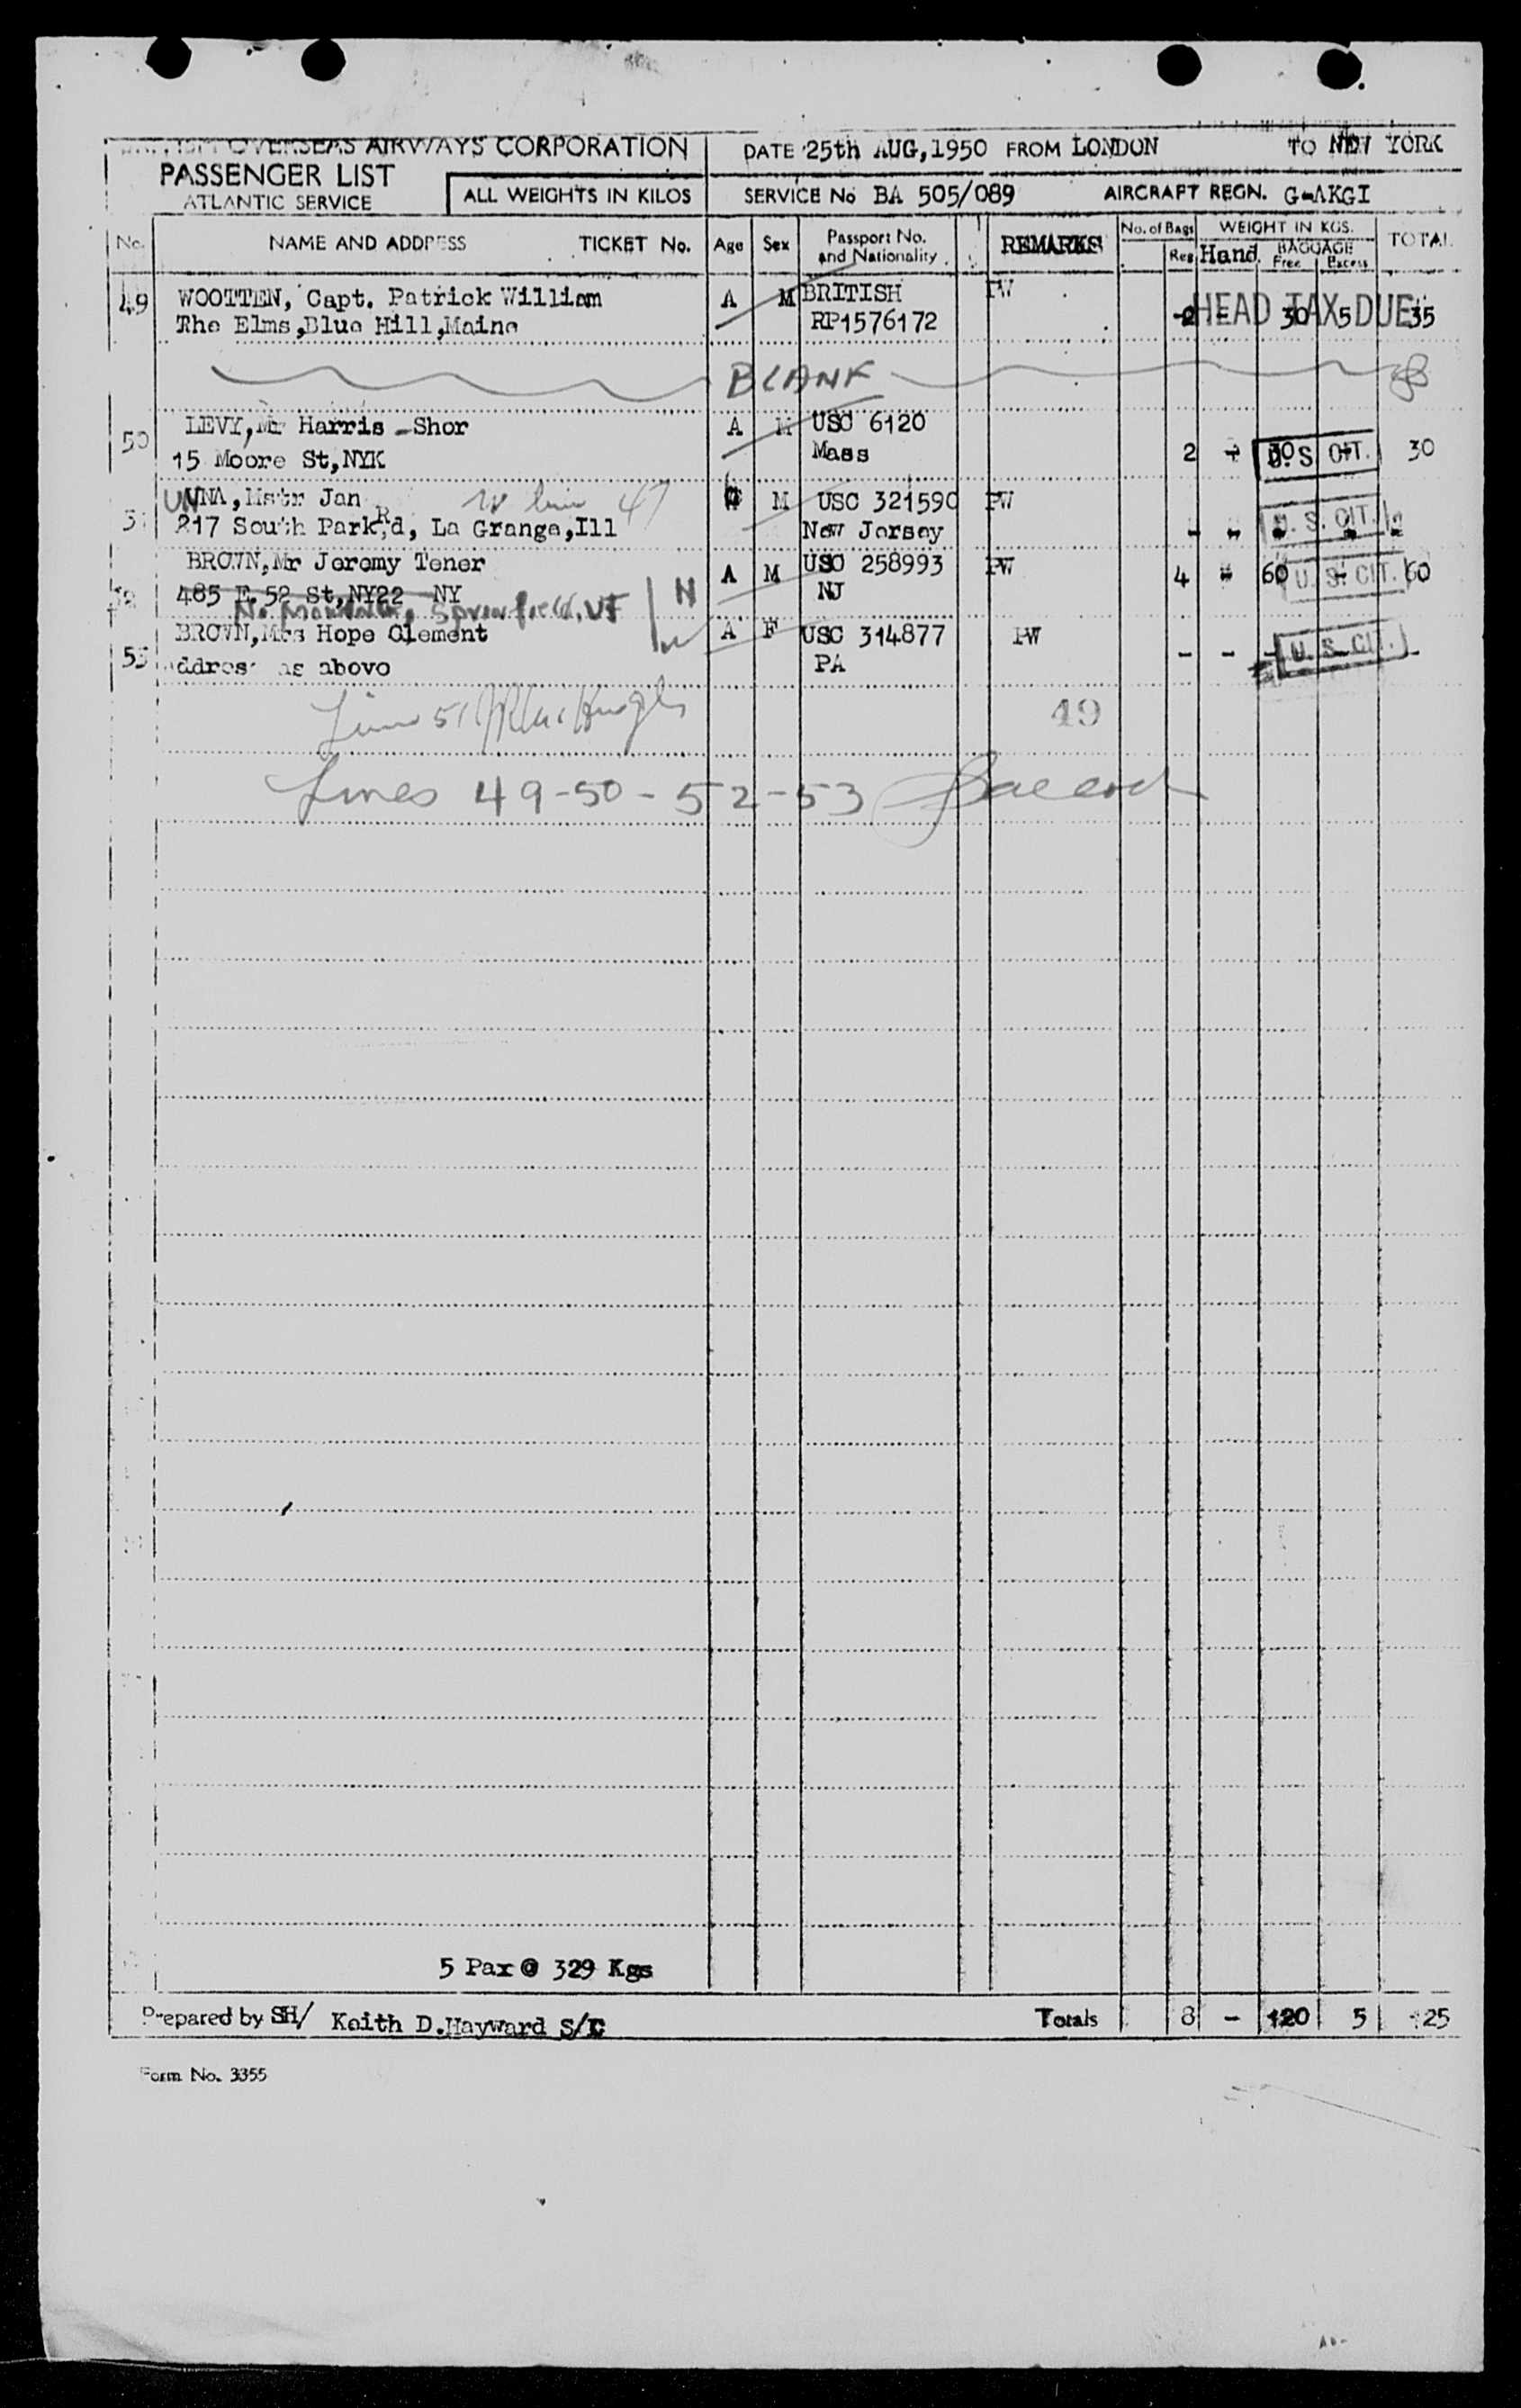 OVERSEAS AIRWAYS CORPORATION
PASSENGER LIST
ATLANTIC SERVICE
ALL WEIGHTS IN KILOS
DATE 25th AUG,1950 FROM LONDON TO NEW YORK
SERVICE No BA 505/089 AIRCRAFT REGN. G-AKGI
No. NAME AND ADDRESS TICKET No. Age Sex Passport No. and Nationality REMARKS No. of Bags Reg Hand WEIGHT IN KGS. BAGGAGE Free Excess TOTAL
49 WOOTTEN, Capt. Patrick William A M BRITISH PW
The Elms,Blue Hill,Maine RP1576172 2 - 30 5 35
HEAD TAX DUE
BLANK
50 LEVY,Mr Harris Shor A M USC 6120
15 Moore St,NYK Mass 2 - 30 - 30
U.S. CIT.
51 UNNA,Mstr Jan R w line 47 M USC 321590 PW
217 South Park,d, La Grange,Ill New Jersey - - - - -
U. S. CIT.
52 BROWN,Mr Jeremy Tener A M USC 258993 PW
485 E 52 St,NY22 NY NJ 4 - 60 - 60
U. S. CIT.
Springfield, VT
N
53 BROWN,Mrs Hope Clement A F USC 314877 PW
Address as above PA - - - - -
U. S. CIT.
Line 51
49
Lines 49-50-52-53
5 Pax @ 329 Kgs
Prepared by SH/ Keith D.Hayward S/C Totals 8 - 120 5 125
Form No. 3355